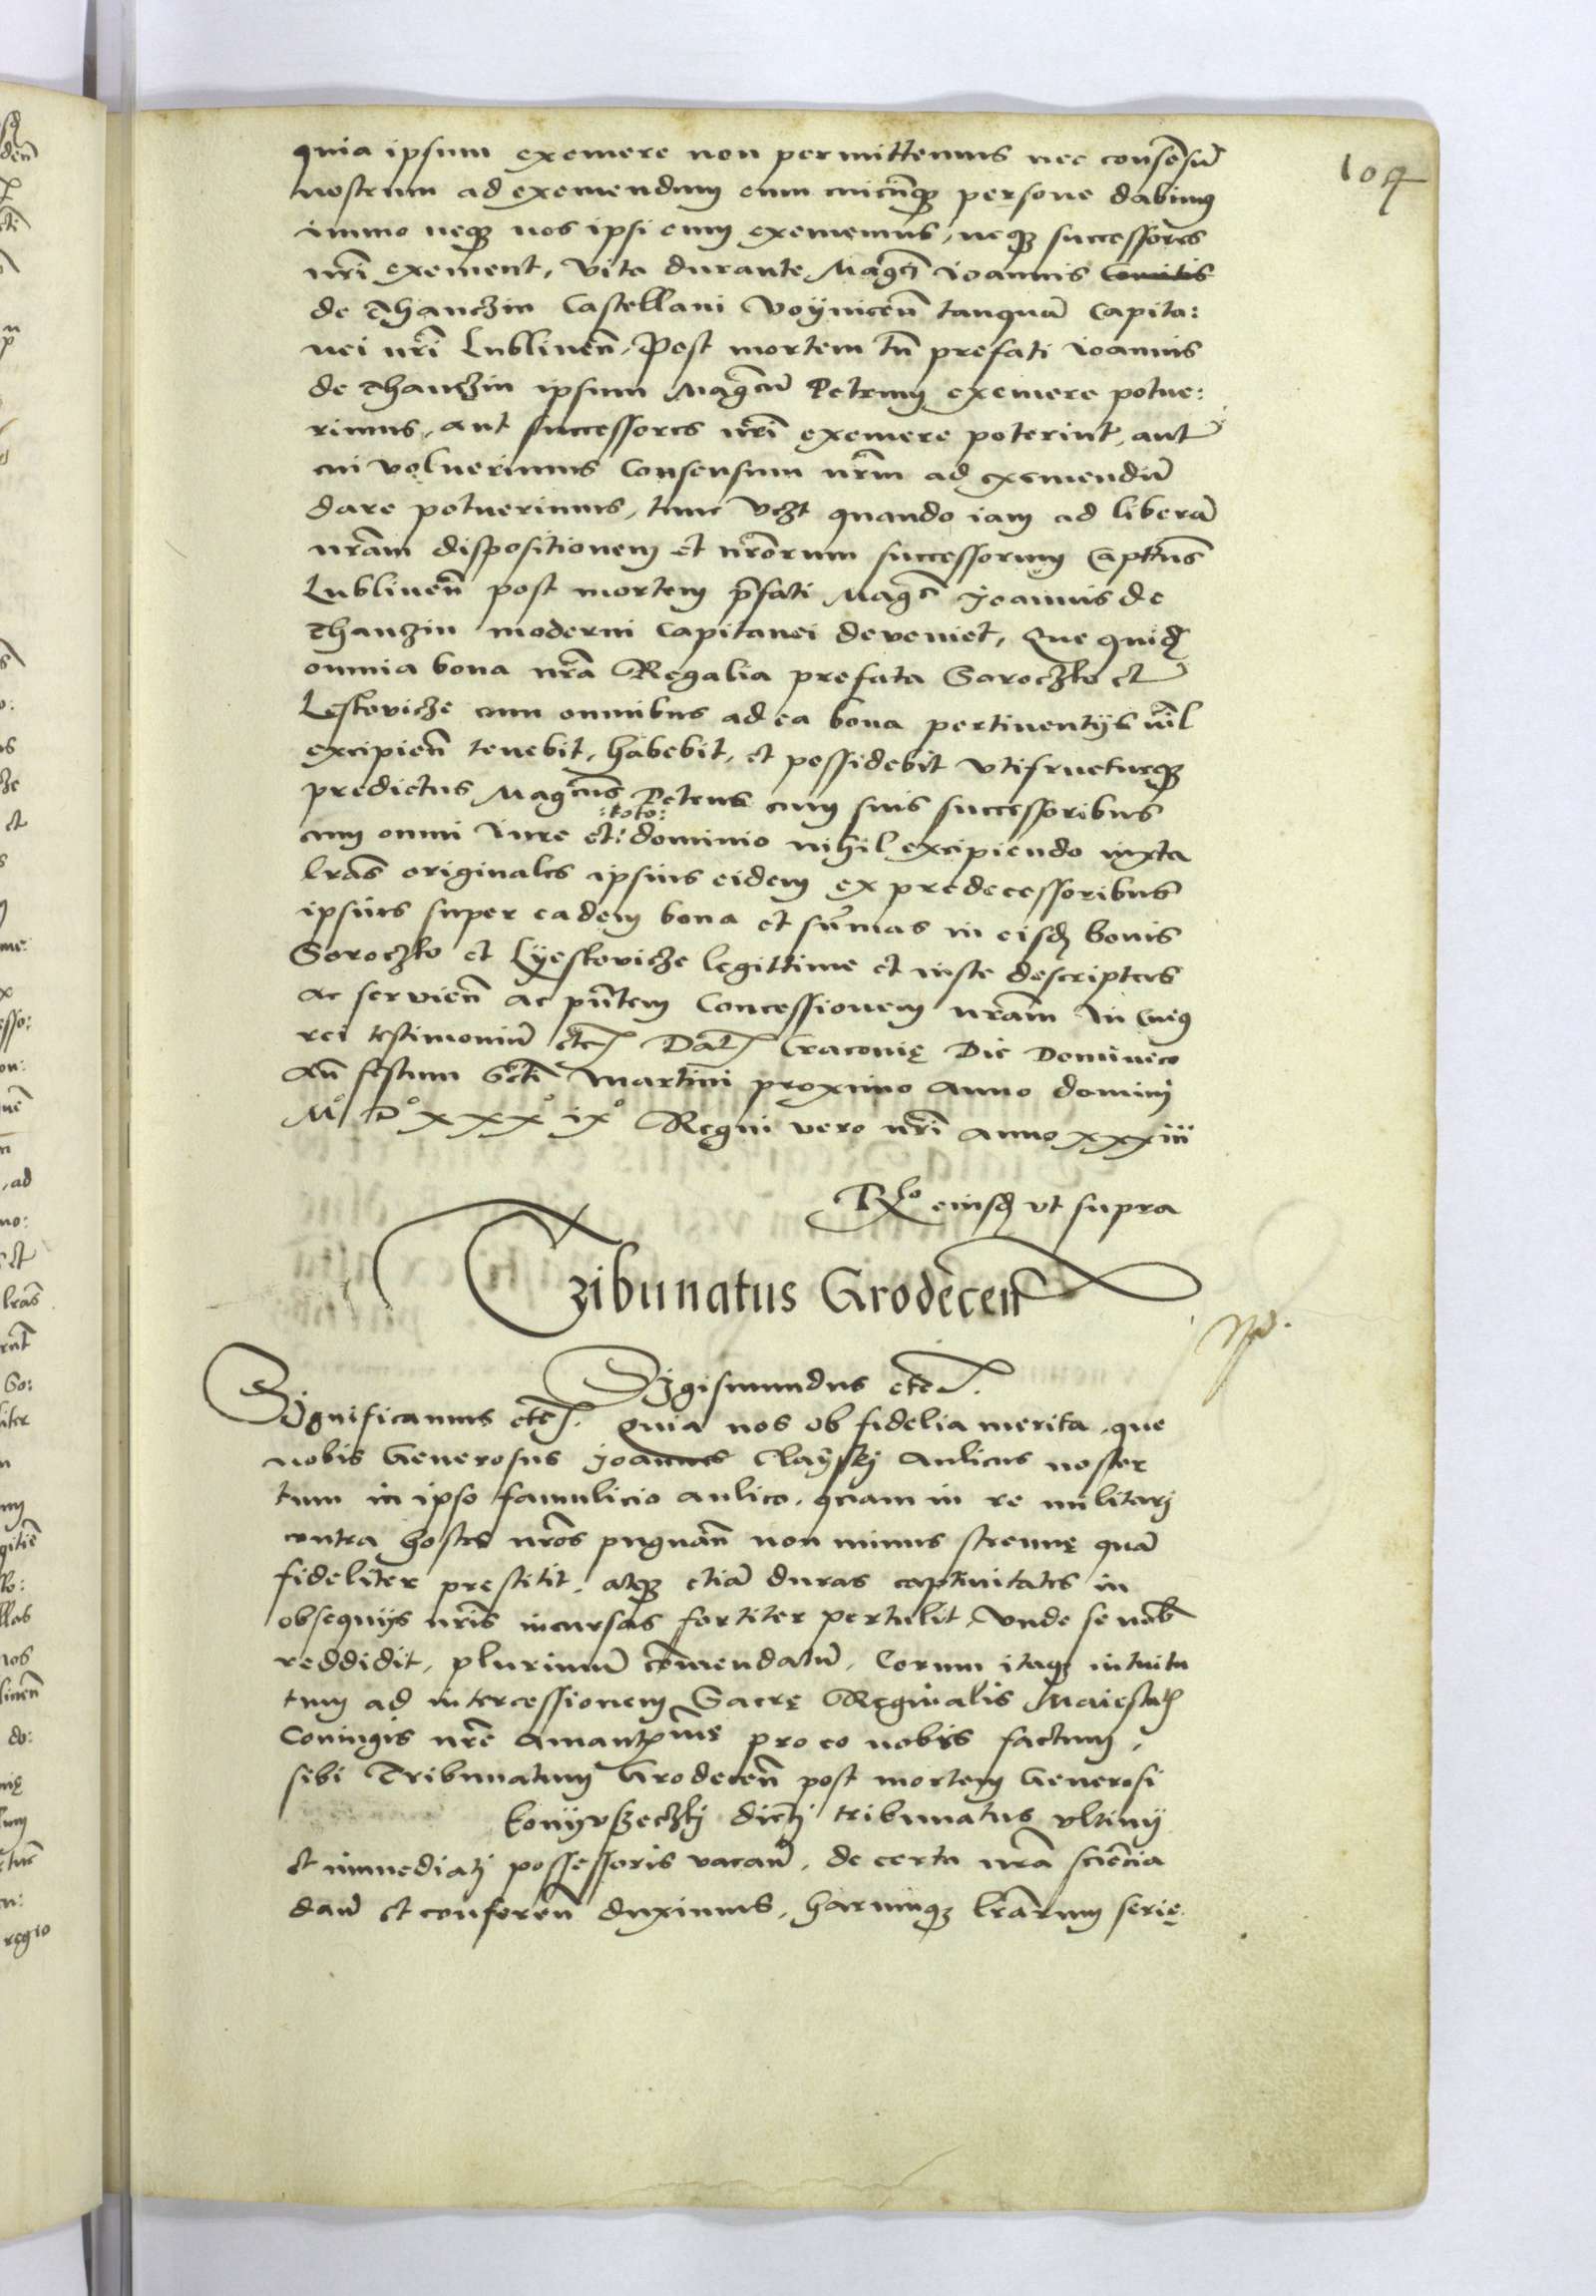 104
quia ipsum exemere non permittemus nec consensũ
nostrum ad exemendum eum cuicunqꝫ persone dabimus
immo neqꝫ nos ipsi eum exememus, neqꝫ successores
nr̃i exement, vita durante Magci Ioannis Comitis
de Thanczin Castellani Voynicen̄ tanquā Capita:
nei nr̃i Lublinen̄, Post mortem tn̄ prefati Ioannis
de Thanczin ipsum Magcū Petrum exemere potue:
rimus, aut successores nr̃i exemere poterint, aut
cui voluerimus Consensum nr̃m ad exemendū
dare potuerimus, tunc vcꝫt quando iam ad liberā
nr̃am dispositionem et nr̃orum successorum Capttus
Lublinen̄ post mortem p̄fati Magci Joannis de
Thanczin moderni Capitanei deveniet, Que quidꝫ
omnia bona nr̃a Regalia prefata Soroczko et
Leskoviche cum omnibus ad ea bona pertinentijs nīl
excipien̄ tenebit, habebit, et possidebit vtifrueturqꝫ
predictus Magcus Petrus cum suis successoribus
:toto:
cum omni Iure et: dominio nihil excipiendo iuxta
lr̃as originales ipsius eidem ex predecessoribus
ipsius super eadem bona et sum̄as in eisdꝫ bonis
Soroczko et Lyeskoviche legittime et iuste descriptas
ac servien̄ ac pn̄tem Concessionem nr̃am In Cuius
rei testimoniū etc̄ Dat̄ Cracovię Die Dominico
an̄ festum Scti Martini proximo anno domini
M° D° xxx° ix° Regni vero nr̃i anno xxxiii
Rlo eiusdꝫ vt supra
Tzibunatus Grodecen̄
Sigismundus etc̄.
Significamus etc̄. quia nos ob fidelia merita, que
nobis Generosus Joannes Claysky Aulicus noster
tum in ipso famulicio aulico, quam in re militarj
contra hostes nr̃os pugnan̄ non minus strenuę quā
fideliter prestitit, atqꝫ etiā duras captivitates in
obsequijs nr̃is incursas fortiter pertulit, Vnde se nob̄
reddidit, plurimū com̄endatū, Eorum itaqꝫ intuitu
tum ad intercessionem Sacrę Reginalis Maiestatꝭ
Coniugis nr̃e Amantxime pro eo nobis factum,
sibi Tribunatum Grodecen̄ post mortem Generosi
Konyvszeczkj dictj tribunatus vltimj
et immediatj possessoris vacan̄, de certa nr̃a sciẽcia
dan̄ et conferen̄ duximus, harumqꝫ lr̃arum serię